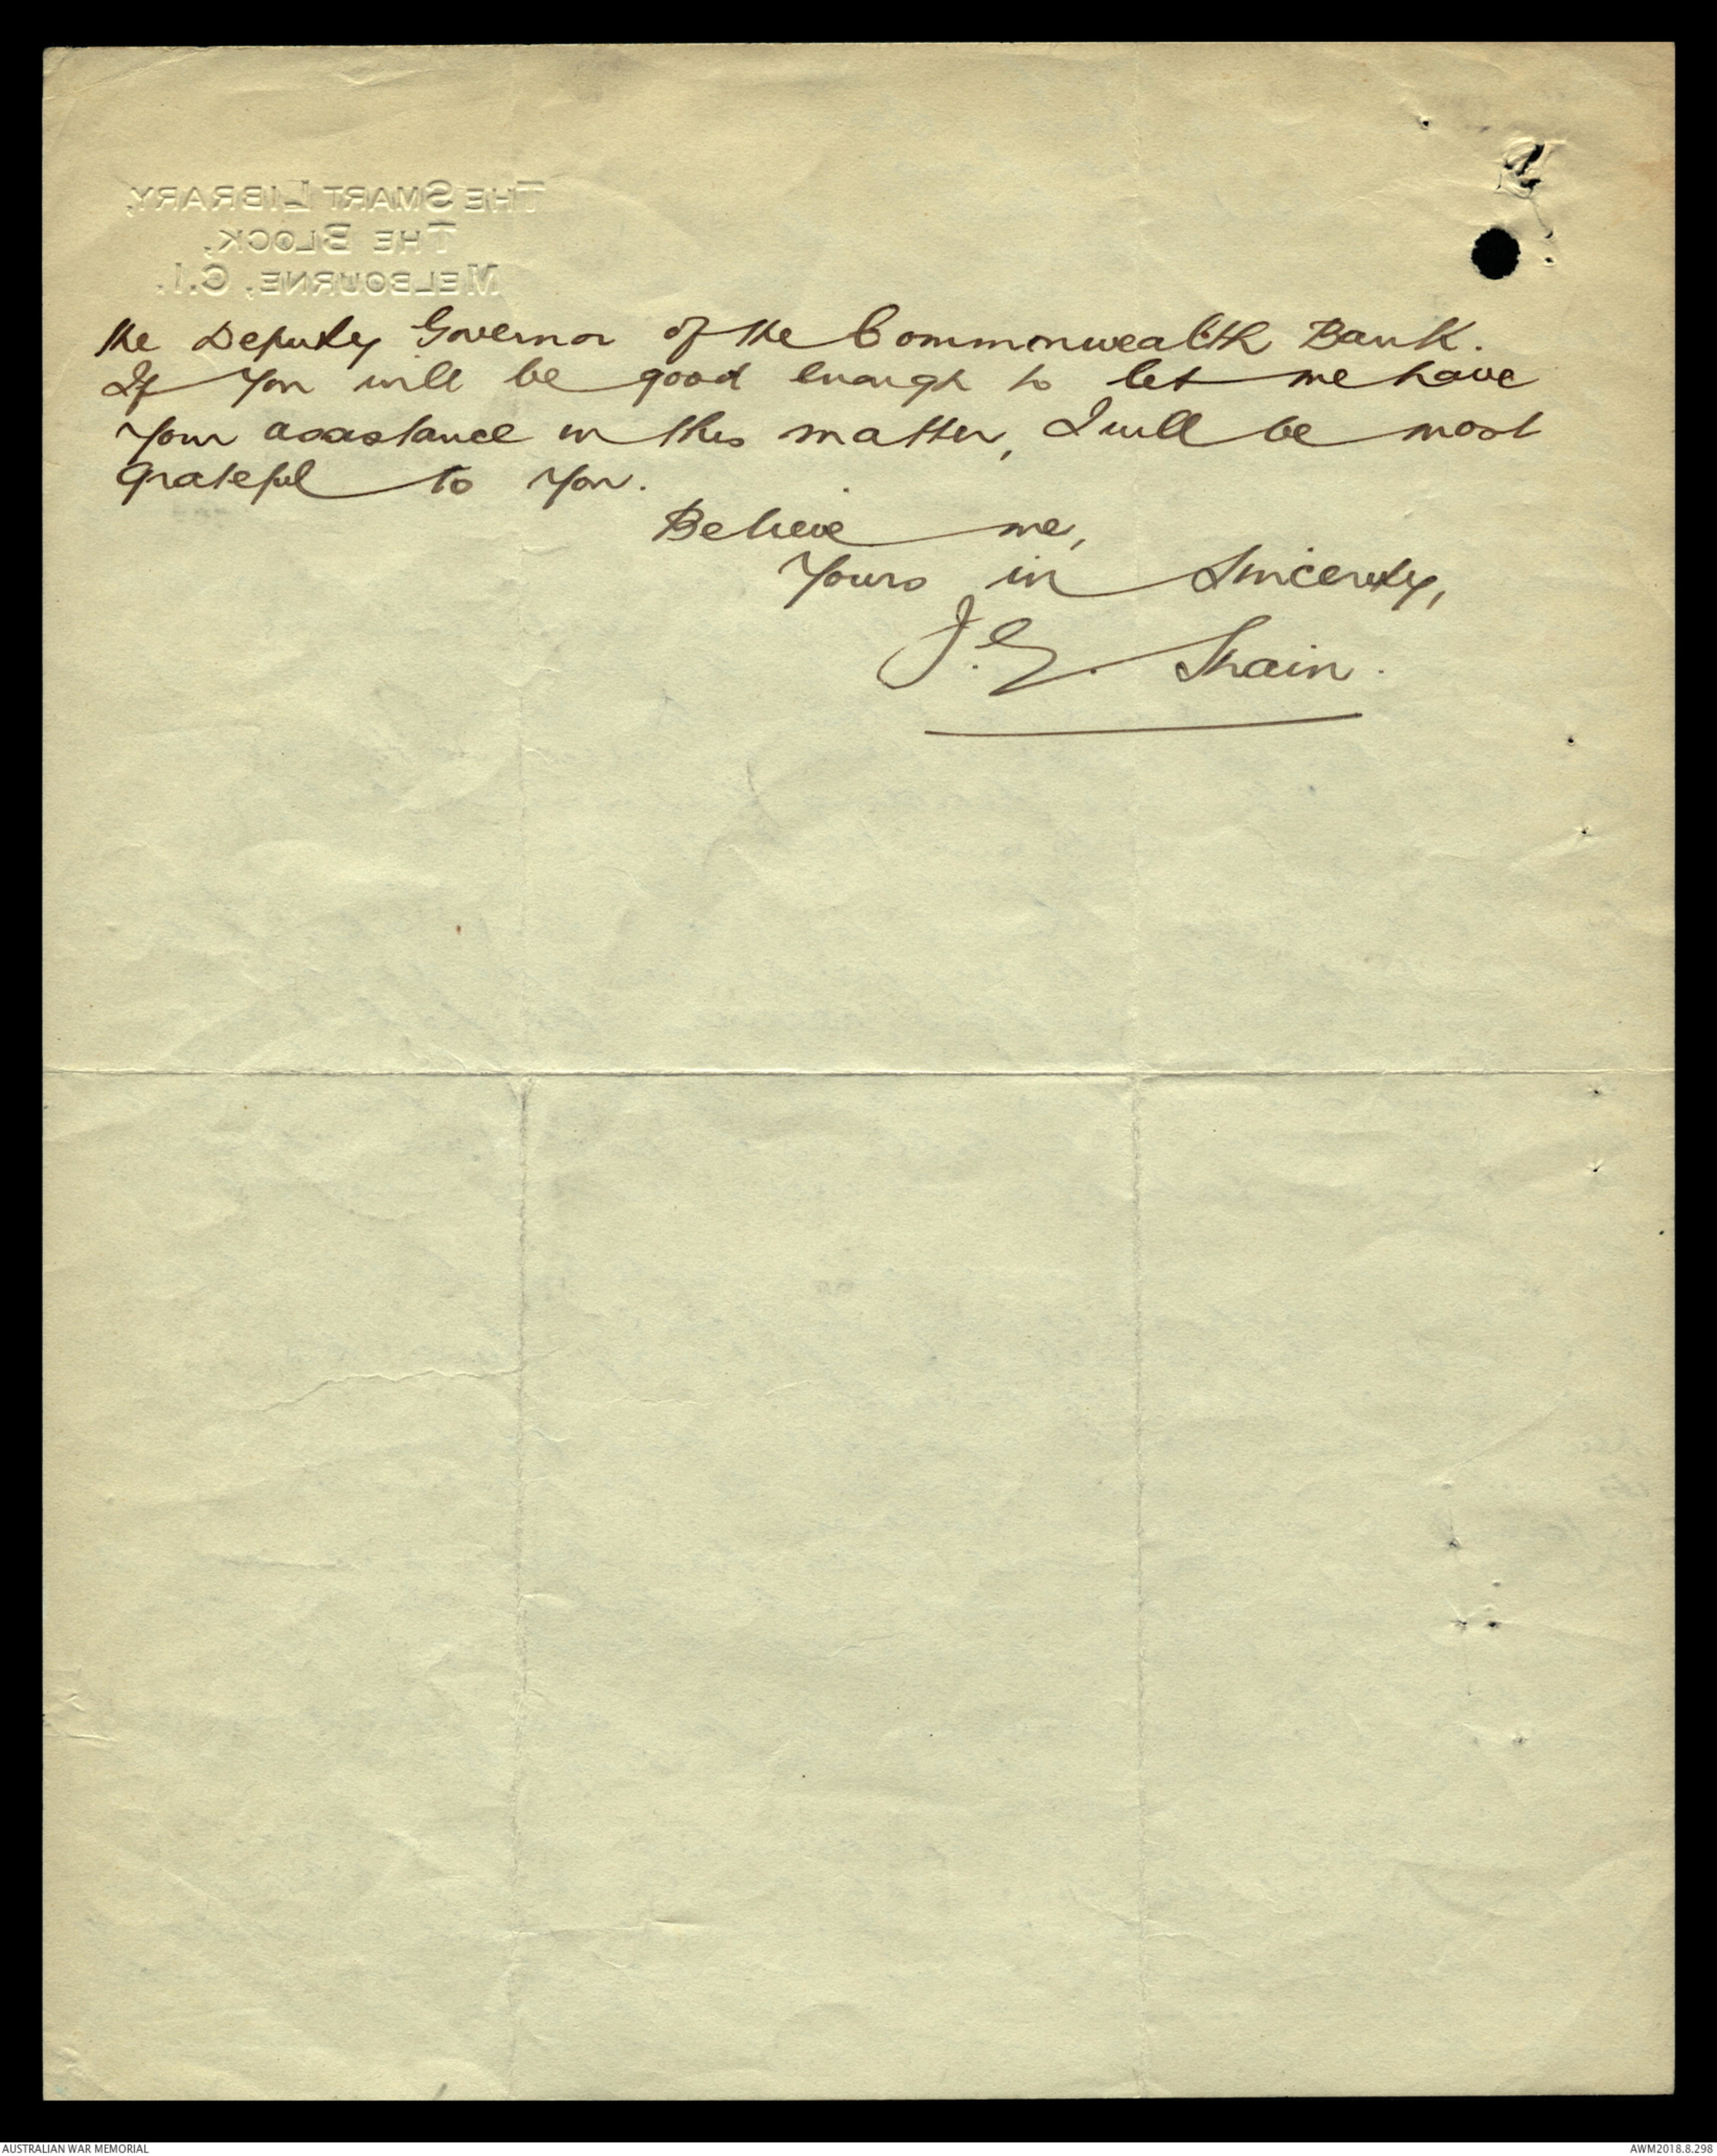 THE SMART LIBRARY,
THE BLOCK,
MELBOURNE, C.1.
the Deputy Governor of the Commonwealth Bank.
If you will be good enough to let me have
your assistance in this matter, I will be most
grateful to you.
Believe me,
Yours in Sincerity,
J.G. Shain.
AUSTRALIAN WAR MEMORIAL
AWM2018.8.298